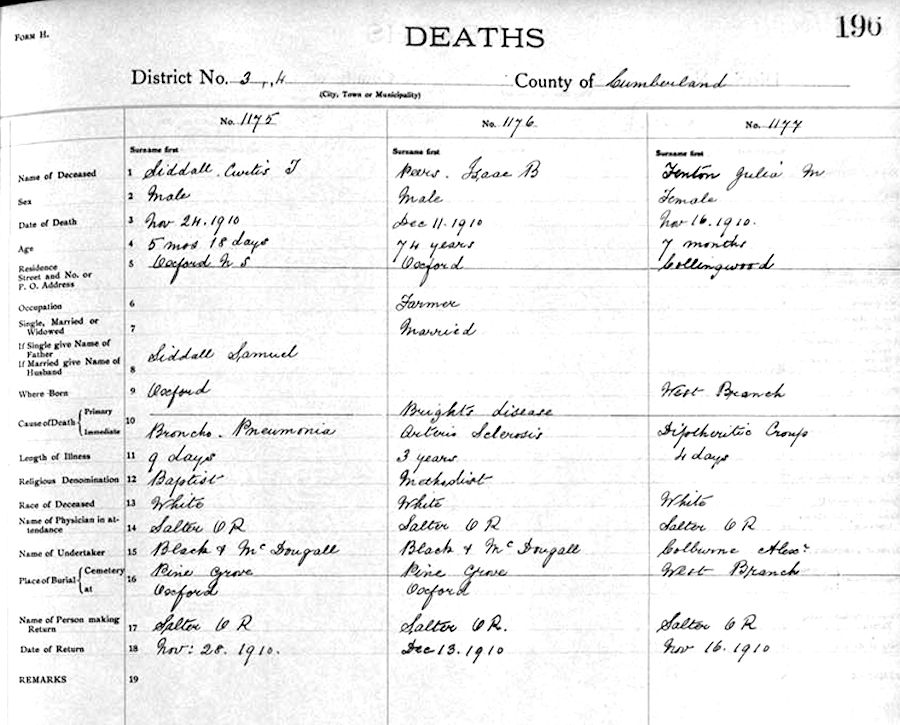 FORM H.
196
DEATHS
District No. 3, 4 County of Cumberland
(City, Town or Municipality)
No. 1175 No. 1176 No. 1177
Surname first Surname first Surname first
Name of Deceased 1 Siddall. Curtis T Peers. Isaac B Fenton Julia M
Sex 2 Male Male Female
Date of Death 3 Nov 24. 1910 Dec 11. 1910 Nov 16. 1910.
Age 4 5 mos 18 days 74 years 7 months
Residence Street and No. or P. O. Address 5 Oxford N S Oxford Collingwood
Occupation 6 Farmer
Single, Married or Widowed 7 Married
If Single give Name of Father
If Married give Name of Husband 8 Siddall Samuel
Where Born 9 Oxford West Branch
Cause of Death { Primary 10 Brights disease
Immediate Broncho. Pneumonia Arterio Sclerosis Diphtheritic Croup
Length of Illness 11 9 days 3 years 4 days
Religious Denomination 12 Baptist Methodist
Race of Deceased 13 White White White
Name of Physician in attendance 14 Salter O R Salter O R Salter O R
Name of Undertaker 15 Black & McDougall Black & McDougall Colburne Alexr
Place of Burial { Cemetery 16 Pine Grove Pine Grove West Branch
at Oxford Oxford
Name of Person making Return 17 Salter O R Salter O R. Salter O R
Date of Return 18 Nov: 28. 1910. Dec 13. 1910 Nov 16. 1910
REMARKS 19